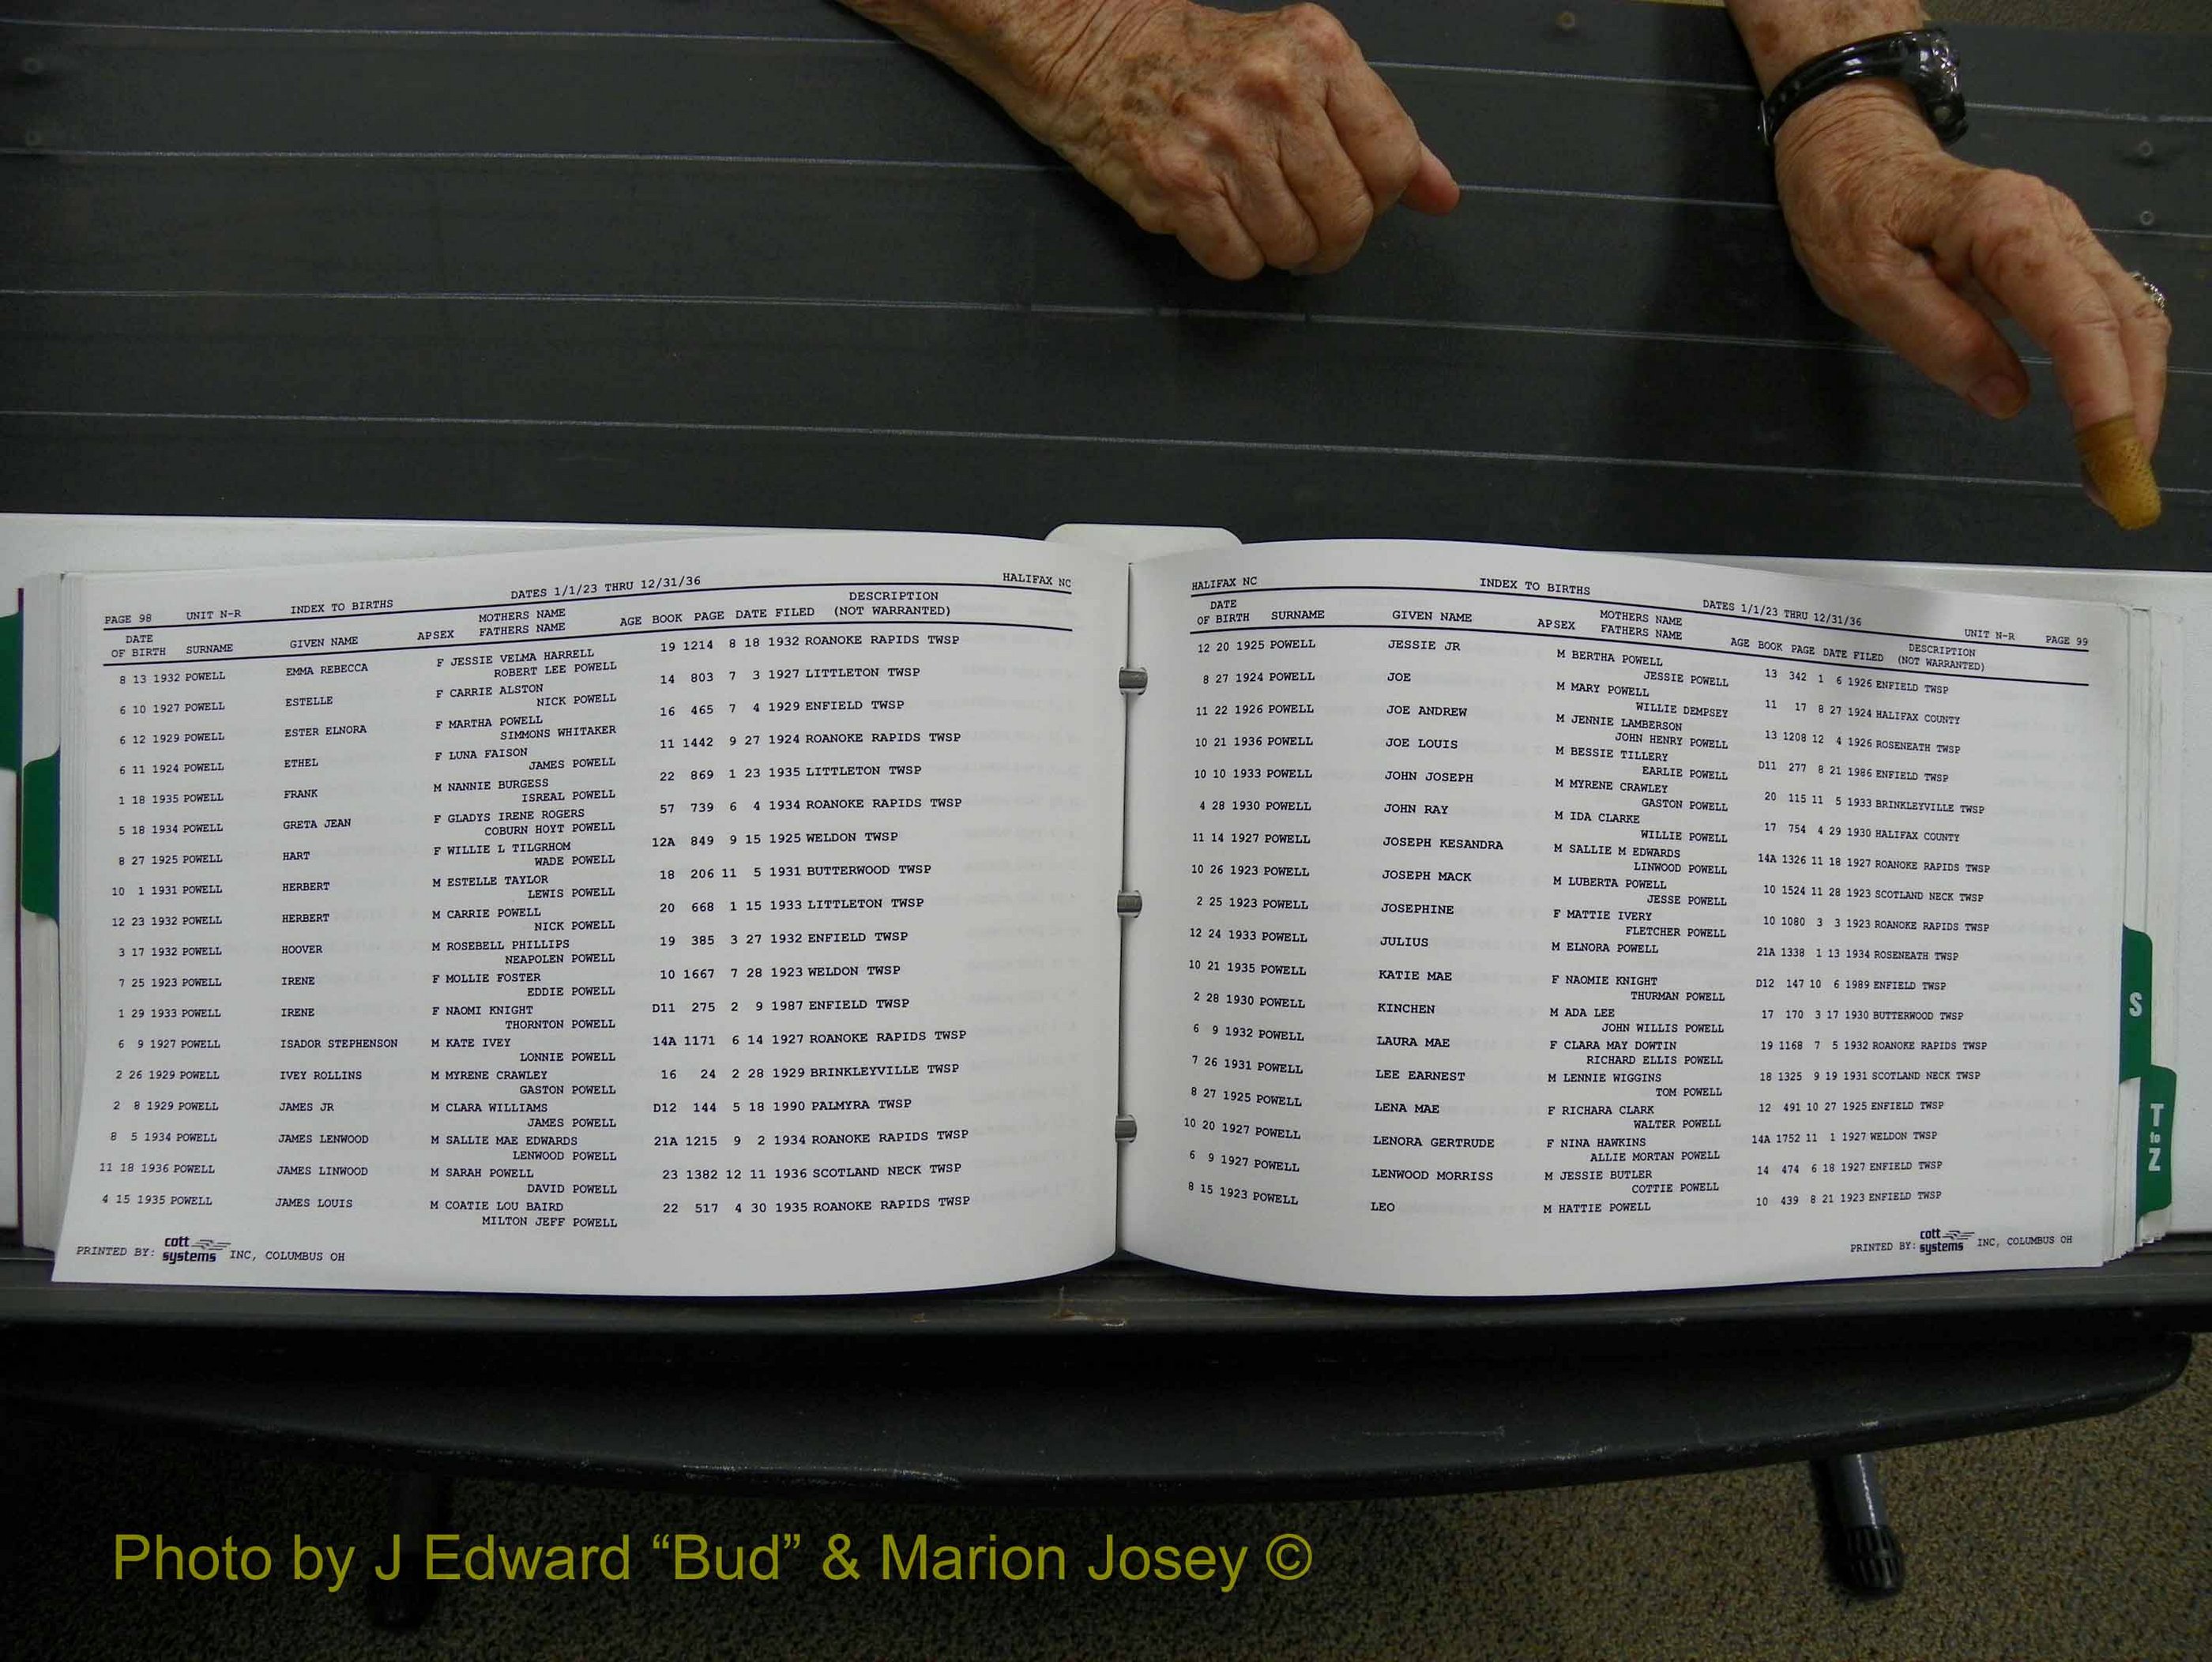 PAGE 98 UNIT N-R INDEX TO BIRTHS DATES 1/1/23 THRU 12/31/36 HALIFAX NC
DATE OF BIRTH SURNAME GIVEN NAME APSEX MOTHERS NAME FATHERS NAME AGE BOOK PAGE DATE FILED DESCRIPTION (NOT WARRANTED)
8 13 1932 POWELL EMMA REBECCA F JESSIE VELMA HARRELL 19 1214 8 18 1932 ROANOKE RAPIDS TWSP
ROBERT LEE POWELL
6 10 1927 POWELL ESTELLE F CARRIE ALSTON 14 803 7 3 1927 LITTLETON TWSP
NICK POWELL
6 12 1929 POWELL ESTER ELNORA F MARTHA POWELL 16 465 7 4 1929 ENFIELD TWSP
SIMMONS WHITAKER
6 11 1924 POWELL ETHEL F LUNA FAISON 11 1442 9 27 1924 ROANOKE RAPIDS TWSP
JAMES POWELL
1 18 1935 POWELL FRANK M NANNIE BURGESS 22 869 1 23 1935 LITTLETON TWSP
ISREAL POWELL
5 18 1934 POWELL GRETA JEAN F GLADYS IRENE ROGERS 57 739 6 4 1934 ROANOKE RAPIDS TWSP
COBURN HOYT POWELL
8 27 1925 POWELL HART F WILLIE L TILGRHOM 12A 849 9 15 1925 WELDON TWSP
WADE POWELL
10 1 1931 POWELL HERBERT M ESTELLE TAYLOR 18 206 11 5 1931 BUTTERWOOD TWSP
LEWIS POWELL
12 23 1932 POWELL HERBERT M CARRIE POWELL 20 668 1 15 1933 LITTLETON TWSP
NICK POWELL
3 17 1932 POWELL HOOVER M ROSEBELL PHILLIPS 19 385 3 27 1932 ENFIELD TWSP
NEAPOLEN POWELL
7 25 1923 POWELL IRENE F MOLLIE FOSTER 10 1667 7 28 1923 WELDON TWSP
EDDIE POWELL
1 29 1933 POWELL IRENE F NAOMI KNIGHT D11 275 2 9 1987 ENFIELD TWSP
THORNTON POWELL
6 9 1927 POWELL ISADOR STEPHENSON M KATE IVEY 14A 1171 6 14 1927 ROANOKE RAPIDS TWSP
LONNIE POWELL
2 26 1929 POWELL IVEY ROLLINS M MYRENE CRAWLEY 16 24 2 28 1929 BRINKLEYVILLE TWSP
GASTON POWELL
2 8 1929 POWELL JAMES JR M CLARA WILLIAMS D12 144 5 18 1990 PALMYRA TWSP
JAMES POWELL
8 5 1934 POWELL JAMES LENWOOD M SALLIE MAE EDWARDS 21A 1215 9 2 1934 ROANOKE RAPIDS TWSP
LENWOOD POWELL
11 18 1936 POWELL JAMES LINWOOD M SARAH POWELL 23 1382 12 11 1936 SCOTLAND NECK TWSP
DAVID POWELL
4 15 1935 POWELL JAMES LOUIS M COATIE LOU BAIRD 22 517 4 30 1935 ROANOKE RAPIDS TWSP
MILTON JEFF POWELL
PRINTED BY: cott systems INC, COLUMBUS OH
HALIFAX NC INDEX TO BIRTHS DATES 1/1/23 THRU 12/31/36 UNIT N-R PAGE 99
DATE OF BIRTH SURNAME GIVEN NAME APSEX MOTHERS NAME FATHERS NAME AGE BOOK PAGE DATE FILED DESCRIPTION (NOT WARRANTED)
12 20 1925 POWELL JESSIE JR M BERTHA POWELL 13 342 1 6 1926 ENFIELD TWSP
JESSIE POWELL
8 27 1924 POWELL JOE M MARY POWELL 11 17 8 27 1924 HALIFAX COUNTY
WILLIE DEMPSEY
11 22 1926 POWELL JOE ANDREW M JENNIE LAMBERSON 13 1208 12 4 1926 ROSENEATH TWSP
JOHN HENRY POWELL
10 21 1936 POWELL JOE LOUIS M BESSIE TILLERY D11 277 8 21 1986 ENFIELD TWSP
EARLIE POWELL
10 10 1933 POWELL JOHN JOSEPH M MYRENE CRAWLEY 20 115 11 5 1933 BRINKLEYVILLE TWSP
GASTON POWELL
4 28 1930 POWELL JOHN RAY M IDA CLARKE 17 754 4 29 1930 HALIFAX COUNTY
WILLIE POWELL
11 14 1927 POWELL JOSEPH KESANDRA M SALLIE M EDWARDS 14A 1326 11 18 1927 ROANOKE RAPIDS TWSP
LINWOOD POWELL
10 26 1923 POWELL JOSEPH MACK M LUBERTA POWELL 10 1524 11 28 1923 SCOTLAND NECK TWSP
JESSE POWELL
2 25 1923 POWELL JOSEPHINE F MATTIE IVERY 10 1080 3 3 1923 ROANOKE RAPIDS TWSP
FLETCHER POWELL
12 24 1933 POWELL JULIUS M ELNORA POWELL 21A 1338 1 13 1934 ROSENEATH TWSP
10 21 1935 POWELL KATIE MAE F NAOMIE KNIGHT D12 147 10 6 1989 ENFIELD TWSP
THURMAN POWELL
2 28 1930 POWELL KINCHEN M ADA LEE 17 170 3 17 1930 BUTTERWOOD TWSP
JOHN WILLIS POWELL
6 9 1932 POWELL LAURA MAE F CLARA MAY DOWTIN 19 1168 7 5 1932 ROANOKE RAPIDS TWSP
RICHARD ELLIS POWELL
7 26 1931 POWELL LEE EARNEST M LENNIE WIGGINS 18 1325 9 19 1931 SCOTLAND NECK TWSP
TOM POWELL
8 27 1925 POWELL LENA MAE F RICHARA CLARK 12 491 10 27 1925 ENFIELD TWSP
WALTER POWELL
10 20 1927 POWELL LENORA GERTRUDE F NINA HAWKINS 14A 1752 11 1 1927 WELDON TWSP
ALLIE MORTAN POWELL
6 9 1927 POWELL LENWOOD MORRISS M JESSIE BUTLER 14 474 6 18 1927 ENFIELD TWSP
COTTIE POWELL
8 15 1923 POWELL LEO M HATTIE POWELL 10 439 8 21 1923 ENFIELD TWSP
PRINTED BY: cott systems INC, COLUMBUS OH
S
T to Z
Photo by J Edward “Bud” & Marion Josey ©